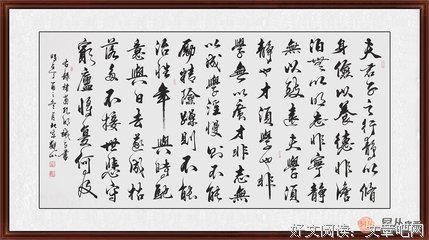 夫君子之行靜以修
身儉以養德非澹
泊無以明志非寧靜
無以致遠夫學須
靜也才須學也非
學無以廣才非志無
以成學淫慢則不能
勵精險躁則不能
治性年與時馳
意與日去遂成枯
落多不接世悲守
窮廬將復何及
右錄諸葛孔明誡子書
好文阅读、文章吧网